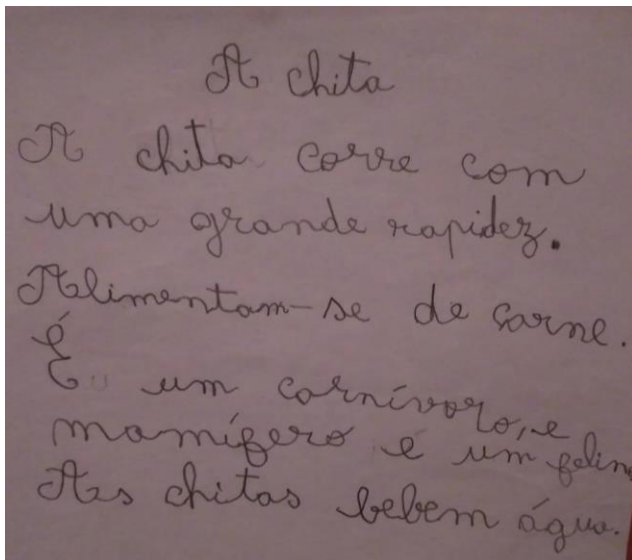 A chita
A chita corre com
uma grande rapidez.
Alimentam-se de carne.
É um carnívoro, e
mamífero e um felin
As chitas bebem água.